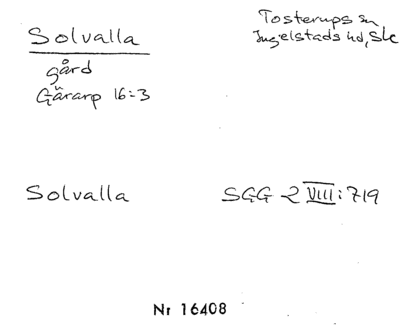 Solvalla
Tosterups sn
Ingelstads hd, Sk
gård
Gärarp 16:3
Solvalla
SGG 2 VIII: 719
Nr 16408